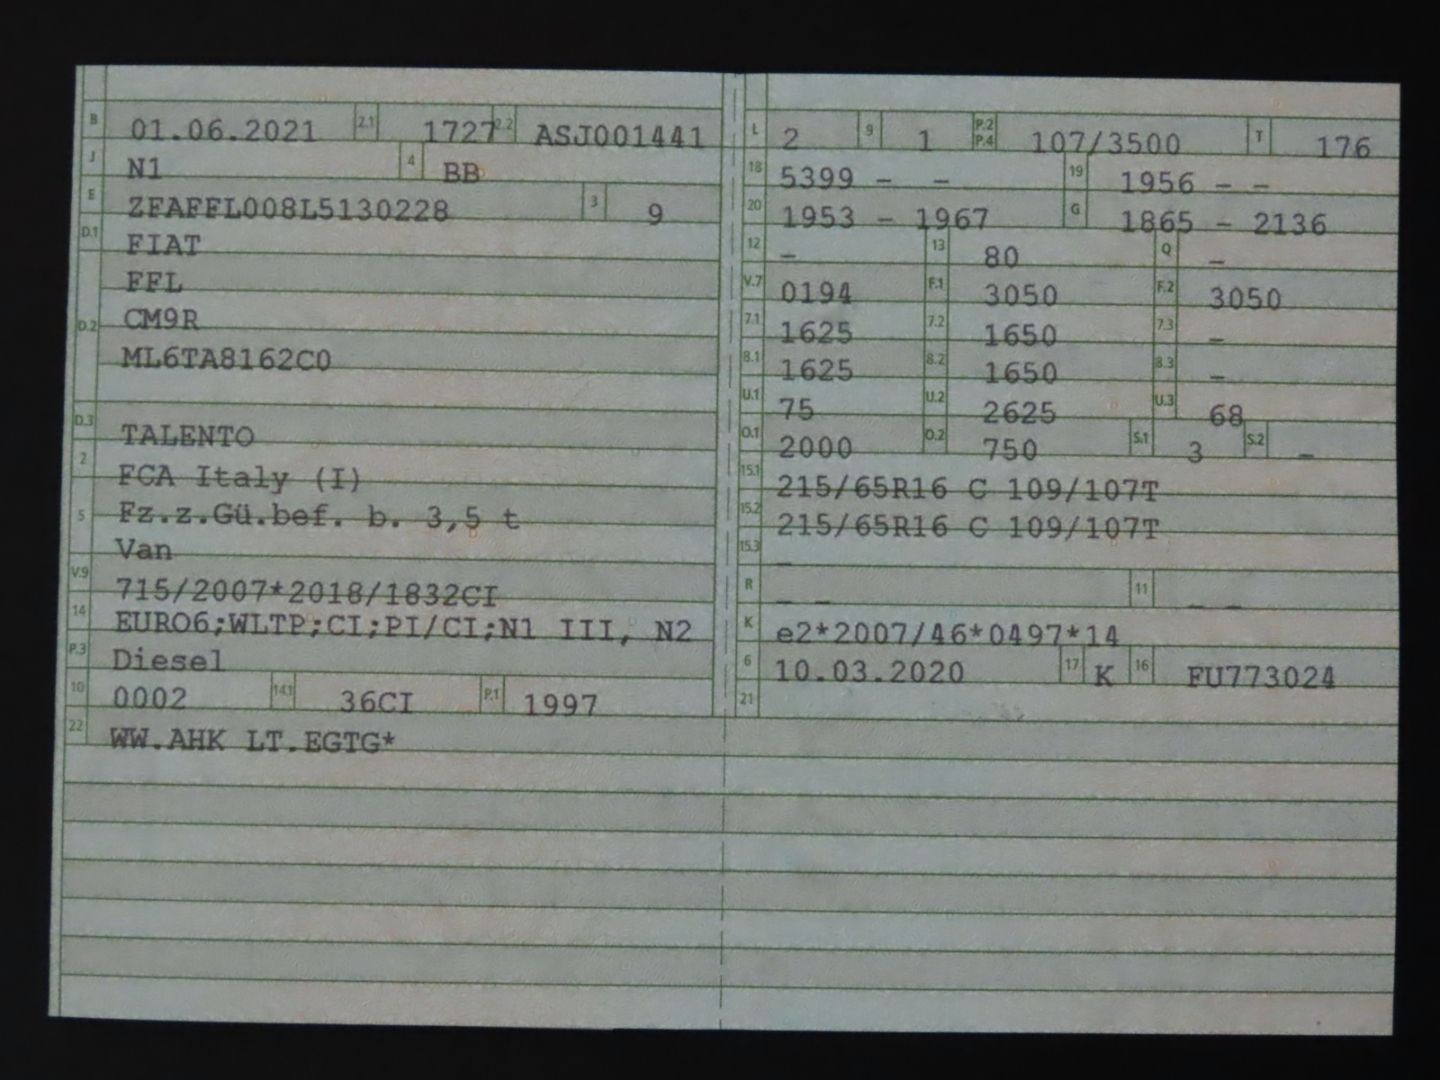 B 01.06.2021 2.1 1727 2.2 ASJ001441
J N1 4 BB
E ZFAFFL008L5130228 3 9
D.1 FIAT
FFL
D.2 CM9R
ML6TA8162C0
D.3 TALENTO
2 FCA Italy (I)
5 Fz.z.Gü.bef. b. 3,5 t
Van
V.9 715/2007*2018/1832CI
14 EURO6;WLTP;CI;PI/CI;N1 III, N2
P.3 Diesel
10 0002 14.1 36CI P.1 1997
22 WW.AHK LT.EGTG*
L 2 9 1 P.2 P.4 107/3500 T 176
18 5399 – – 19 1956 – –
20 1953 – 1967 G 1865 – 2136
12 – 13 80 Q –
V.7 0194 F.1 3050 F.2 3050
7.1 1625 7.2 1650 7.3 –
8.1 1625 8.2 1650 8.3 –
U.1 75 U.2 2625 U.3 68
O.1 2000 O.2 750 S.1 3 S.2 –
15.1 215/65R16 C 109/107T
15.2 215/65R16 C 109/107T
15.3 –
R – – 11 – –
K e2*2007/46*0497*14
6 10.03.2020 17 K 16 FU773024
21